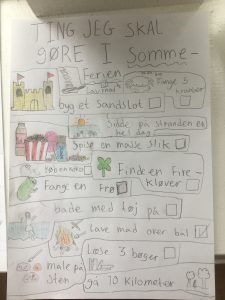 TING JEG SKAL
GØRE I Somme-
Ferien
Fange 5
krabber
byg et Sandslot
Sidde på stranden en
hel dag
Spise en masse Slik
Finde en Fire-
kløver
Fang en Frø
bade med tøj på
Lave mad over bål
Læse 3 bøger
male på
Sten
gå 10 Kilometer